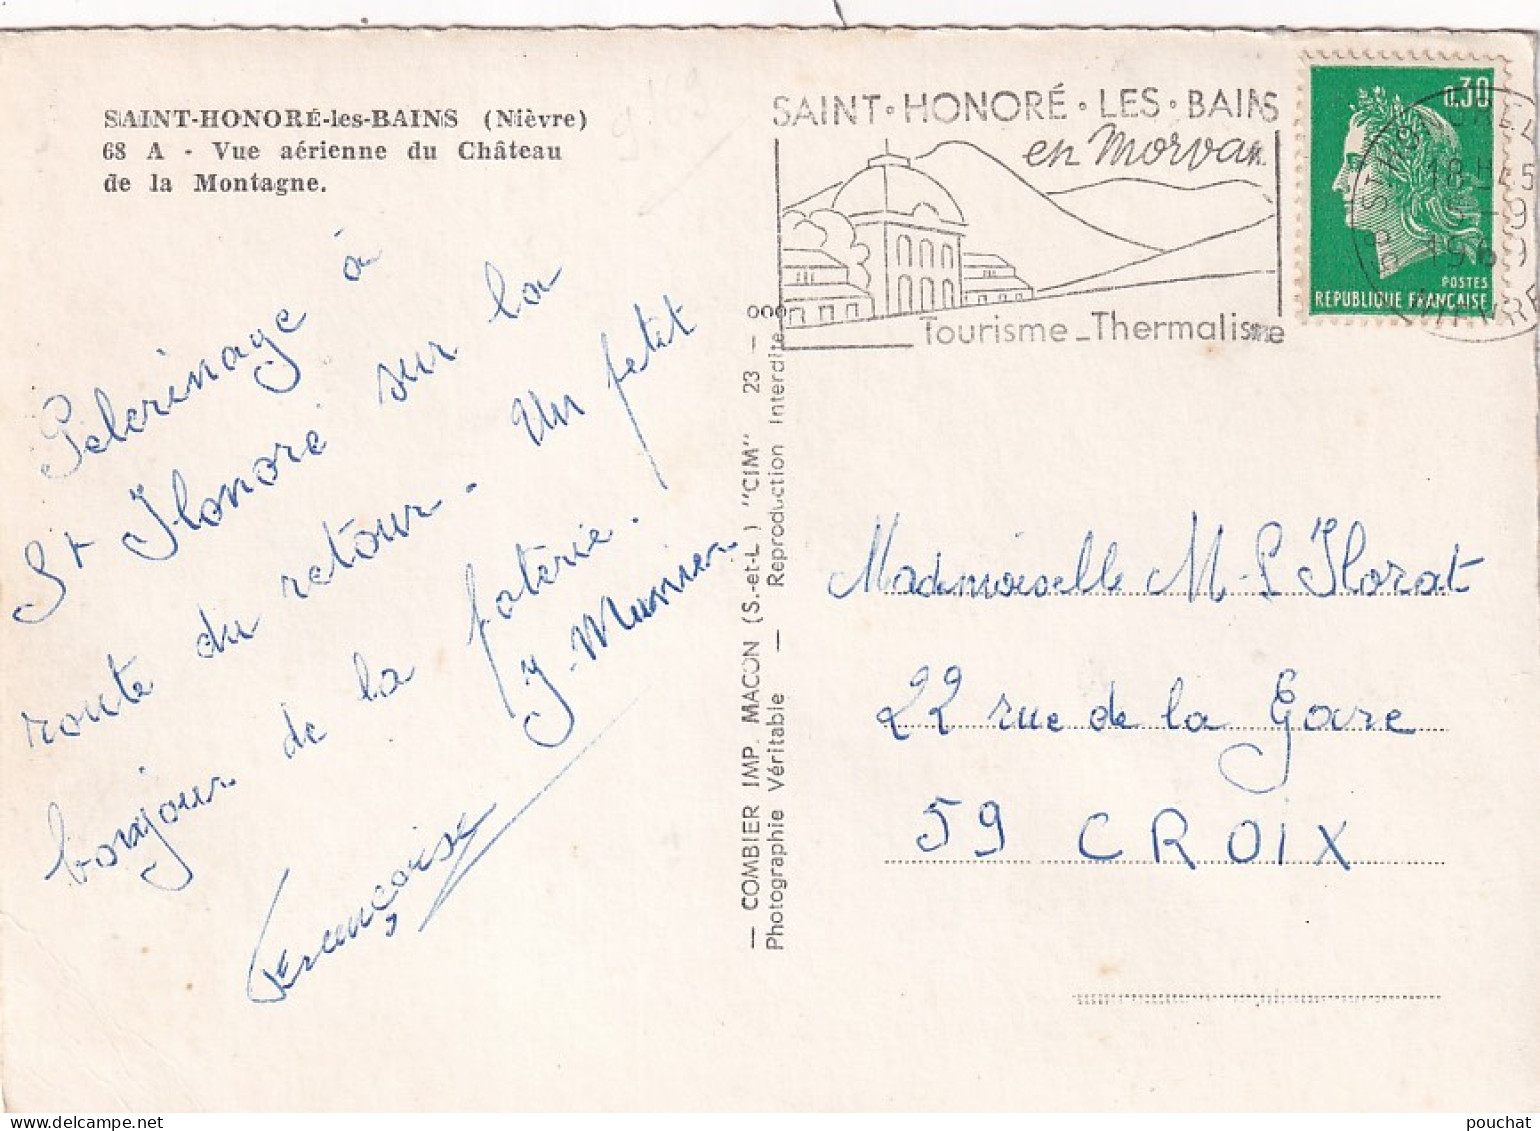 SAINT-HONORÉ-les-BAINS (Nièvre)
68 A - Vue aérienne du Château
de la Montagne.
Pèlerinage à
St Honoré sur la
route du retour. Un petit
bonjour de la poterie.
J. Munier
Françoise
— COMBIER IMP. MACON (S.-et-L.) "CIM" 23 —
Photographie Véritable — Reproduction Interdite
SAINT·HONORÉ·LES·BAINS
en Morvan
Tourisme_Thermalisme
0,30
POSTES
REPUBLIQUE FRANÇAISE
18H45
5-9
1969
Mademoiselle M-P Florat
22 rue de la Gare
59 CROIX
pouchat